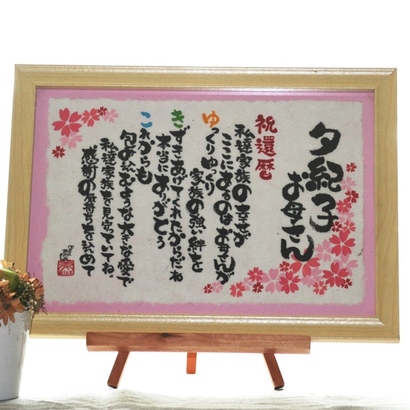 夕紀子
お母さん
祝還暦
私達家族の幸せが
ここにあるのはお母さんが
ゆっくりゆっくり
家族の強い絆を
きずきあげてくれたからだね
本当にありがとう
これからも
包みこむような大きな愛で
私達家族を見守っていてね。
感謝の気持ちを込めて